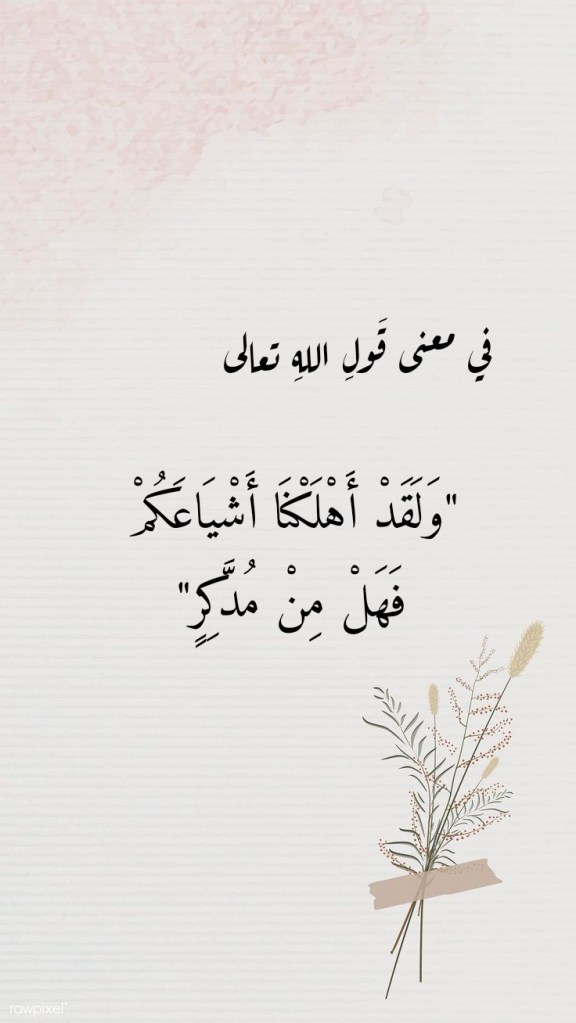 في معنى قَولِ اللهِ تعالى
"وَلَقَدْ أَهْلَكْنَا أَشْيَاعَكُمْ
فَهَلْ مِنْ مُدَّكِرٍ"
rawpixel